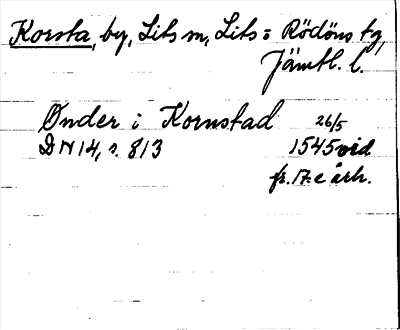 Korsta, by, Lits sn, Lits = Rödöns tg,
Jämtl. l.
Önder i Kornstad 26/5
DN 14, s. 813 1545 vid.
fr. 17:e årh.